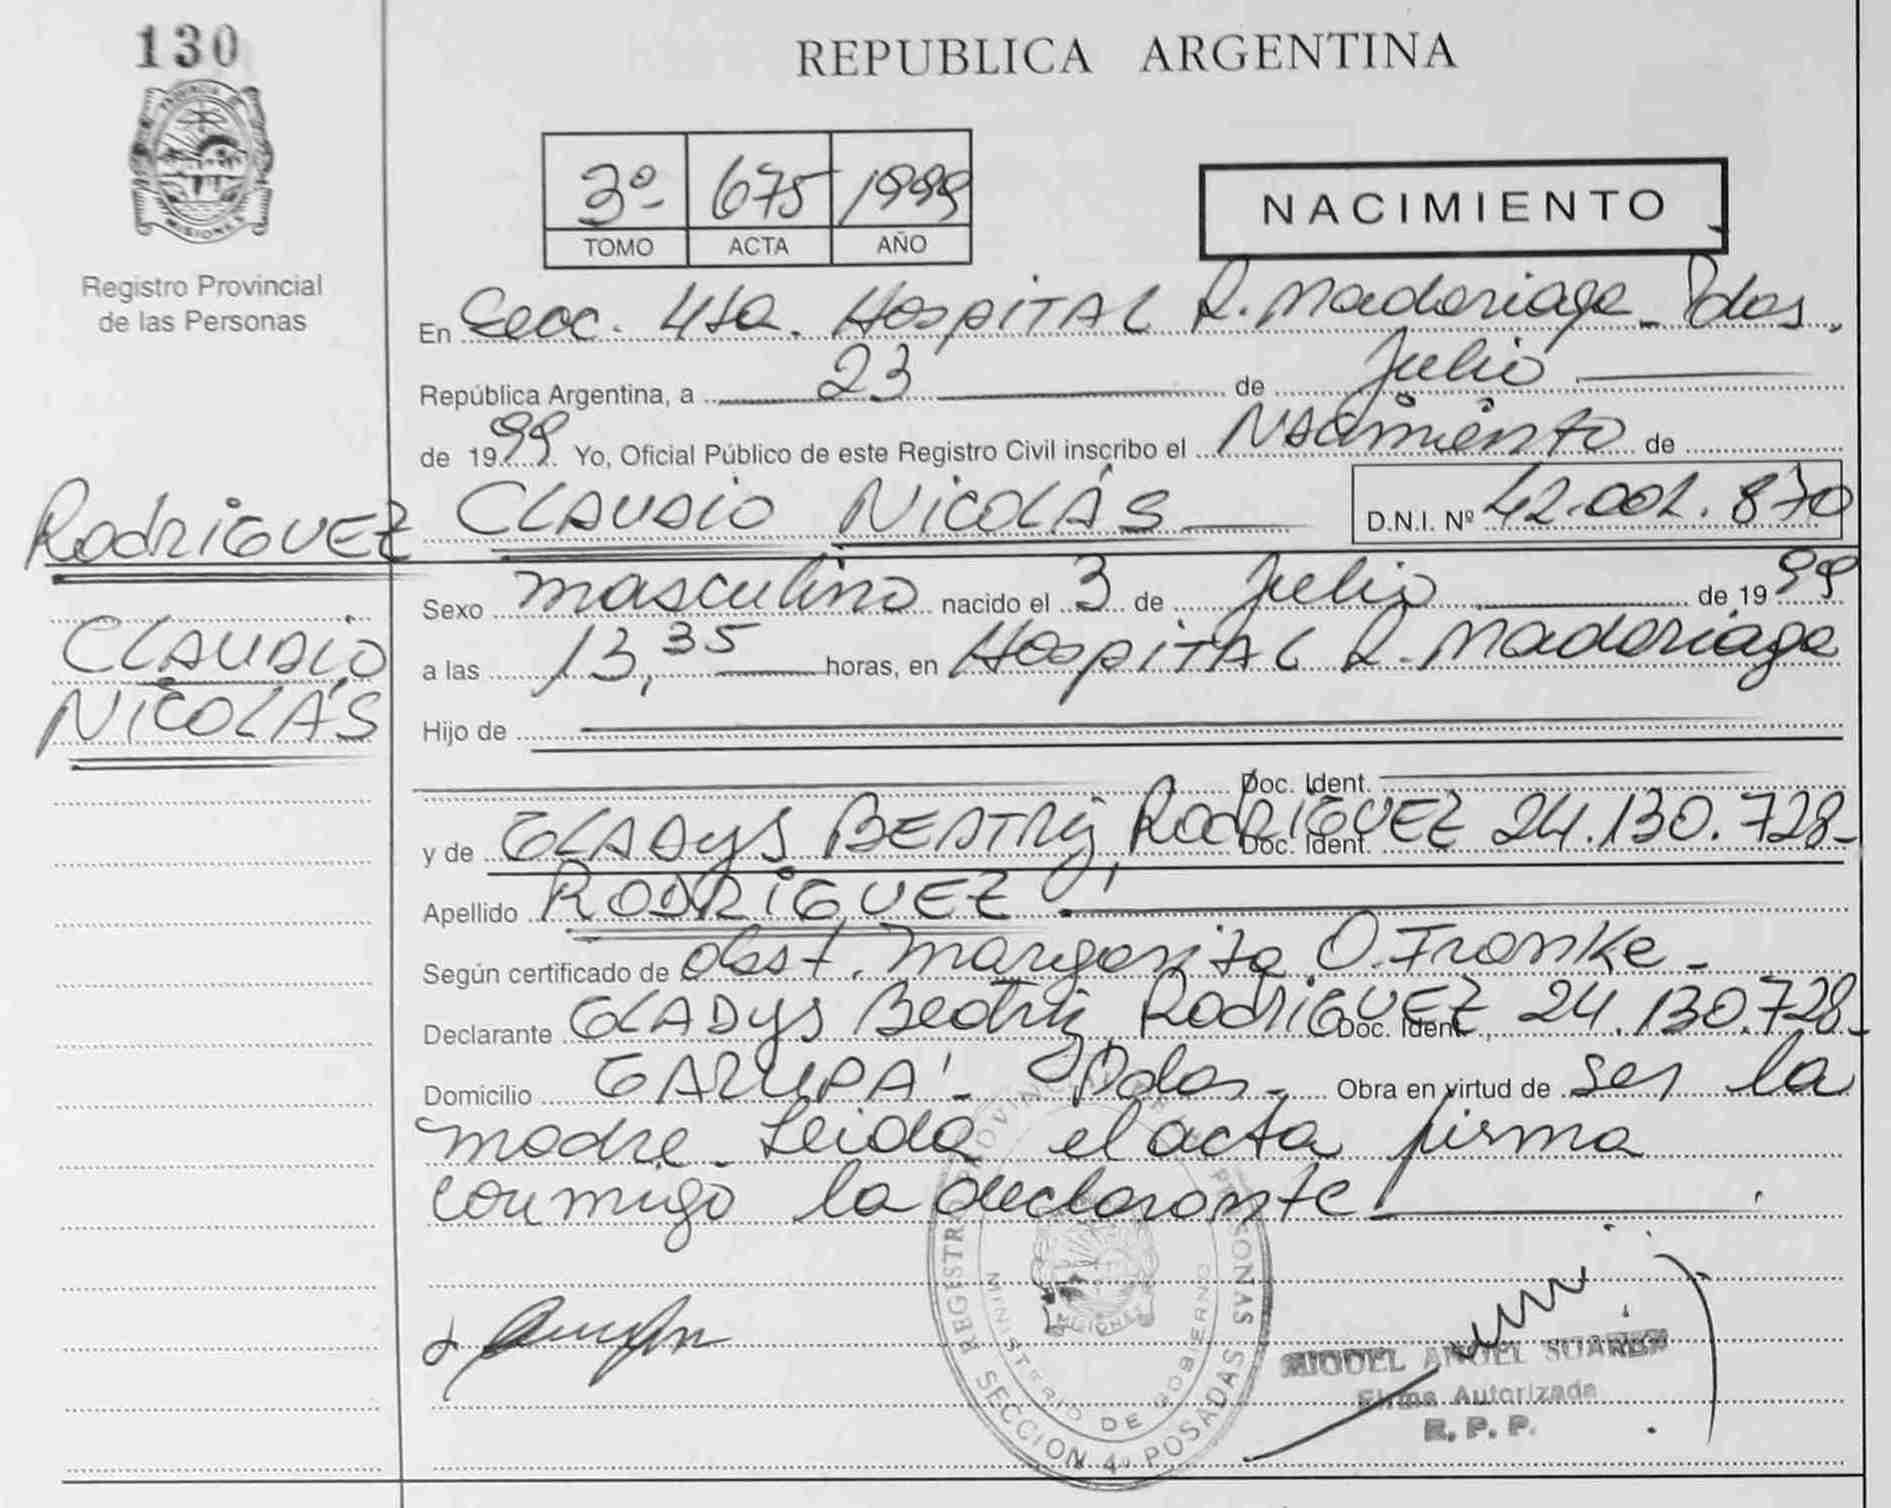 130
REPUBLICA ARGENTINA
PROVINCIA DE
MISIONES
Registro Provincial
de las Personas
3º 675 1999
TOMO ACTA AÑO
NACIMIENTO
En Secc. 4ta. HospiTAL R. Madariaga - Pdas.
República Argentina, a 23 de Julio
de 1999 Yo, Oficial Público de este Registro Civil inscribo el Nacimiento de
RodriGUEZ CLAUDiO NiCOLÁS D.N.I. Nº 42.001.870
Sexo masculino nacido el 3 de Julio de 1999
CLAUDiO
a las 13,35 horas, en HospiTAL R. Madariaga
NiCOLÁS
Hijo de
Doc. Ident.
y de GLADyS BEATRiz RodRiGUEZ Doc. Ident. 24.130.728-
Apellido RODRiGUEZ
Según certificado de Obst. Margarita O. Franke -
Declarante GLADyS Beatriz RodriGUEZ Doc. Ident. 24.130.728-
Domicilio GARUPA' - Pdas - Obra en virtud de ser la
madre - Leida el acta firma
conmigo la declarante
REGISTRO PROVINCIAL DE LAS PERSONAS
MINISTERIO DE GOBIERNO
MISIONES
SECCION 4ª POSADAS
MIGUEL ANGEL SUAREZ
Firma Autorizada
R. P. P.